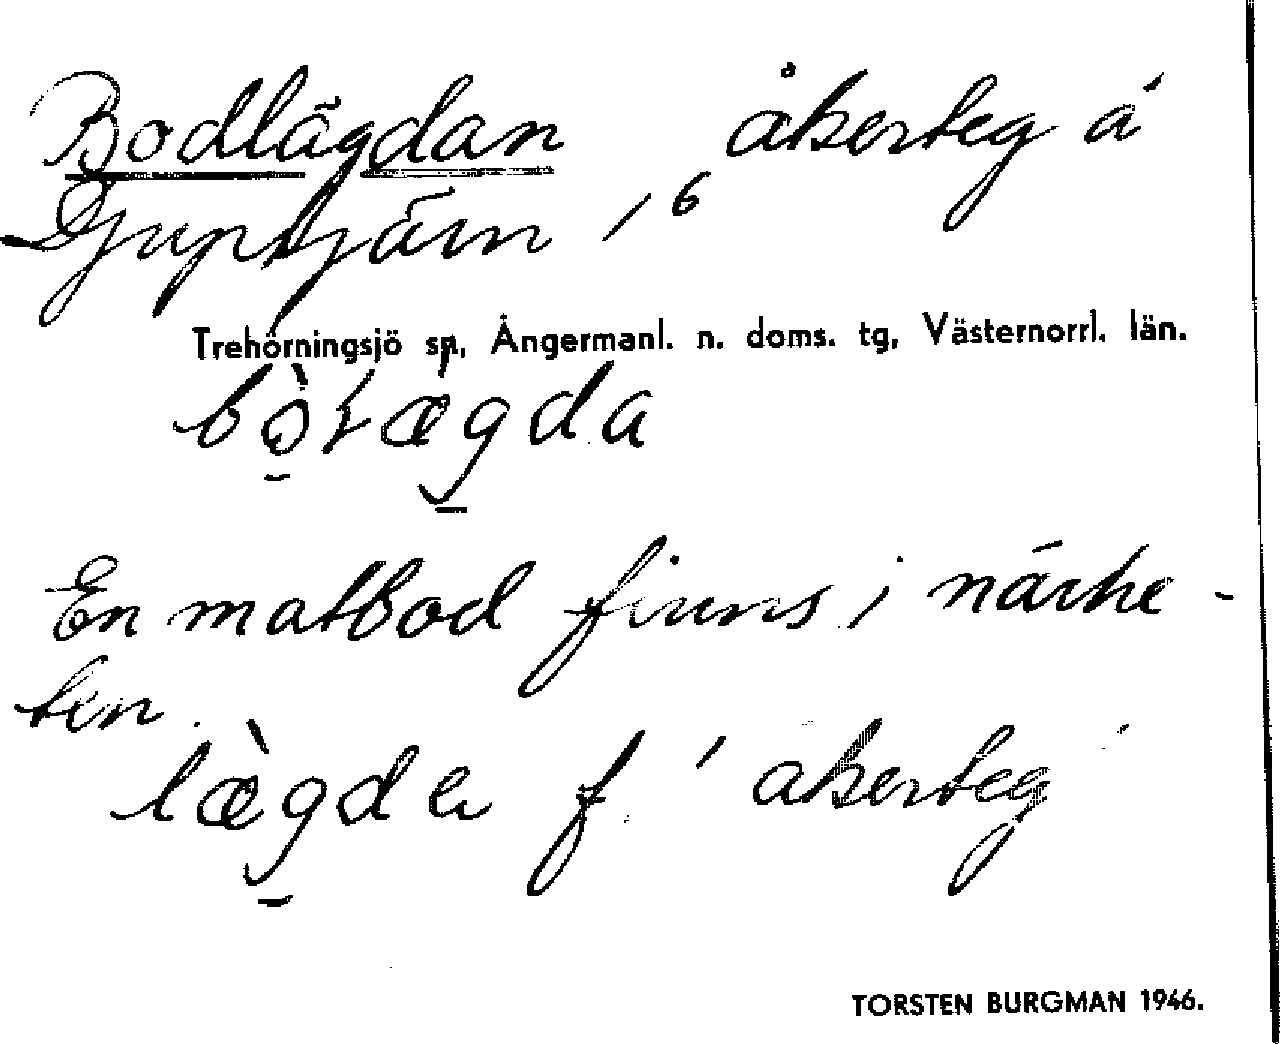 Bodlägdan åkerteg å
Djuptjärn 1⁶
Trehörningsjö sn, Ångermanl. n. doms. tg, Västernorrl. län.
En matbod finns i närhe-
ten.
lægde f. ' åkerteg '
TORSTEN BURGMAN 1946.